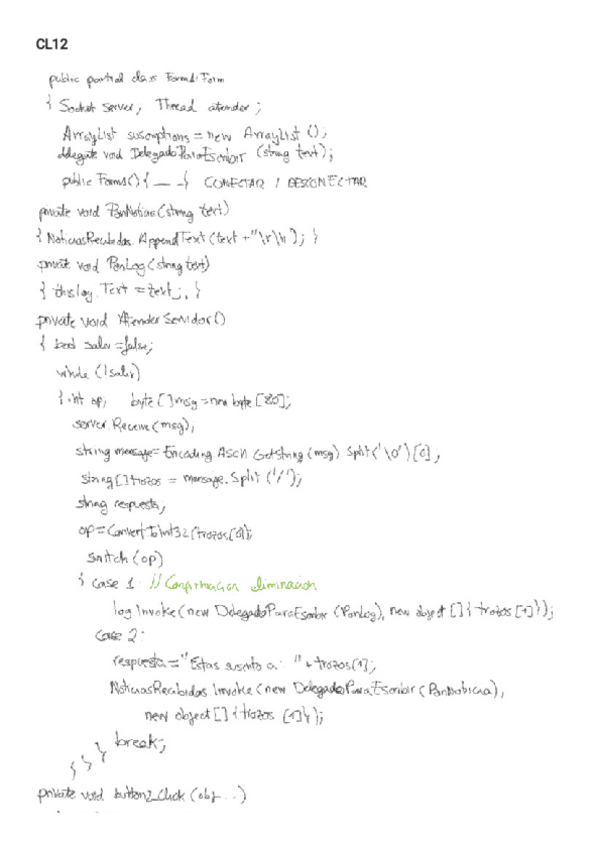 CL12
public partial class Form1: Form
{ Socket server, Thread atender;
ArrayList suscriptions = new ArrayList ();
delegate void DelegadoParaEscribir (string text);
public Form1() { __ } CONECTAR / DESCONECTAR
private void PonNoticias (string text)
{ NoticiasRecibidas.AppendText (text + "\r\n"); }
private void PonLog (string text)
{ this.log.Text = text; }
private void AtenderServidor ()
{ bool salir = false;
while (!salir)
{ int op; byte [] msg = new byte [80];
server.Receive (msg);
string mensaje = Encoding.ASCII.GetString (msg).Split('\0')[0];
string [] trozos = mensaje.Split ('/');
string respuesta;
op = Convert.ToInt32 (trozos[0]);
switch (op)
{ case 1: // Confirmacion eliminacion
log.Invoke (new DelegadoParaEscribir (PonLog), new object [] { trozos [1] });
case 2:
respuesta = "Estas suscrito a: " + trozos[1];
NoticiasRecibidas.Invoke (new DelegadoParaEscribir (PonNoticia),
new object [] { trozos [1] });
break;
} } }
private void button2_Click (obj ...)